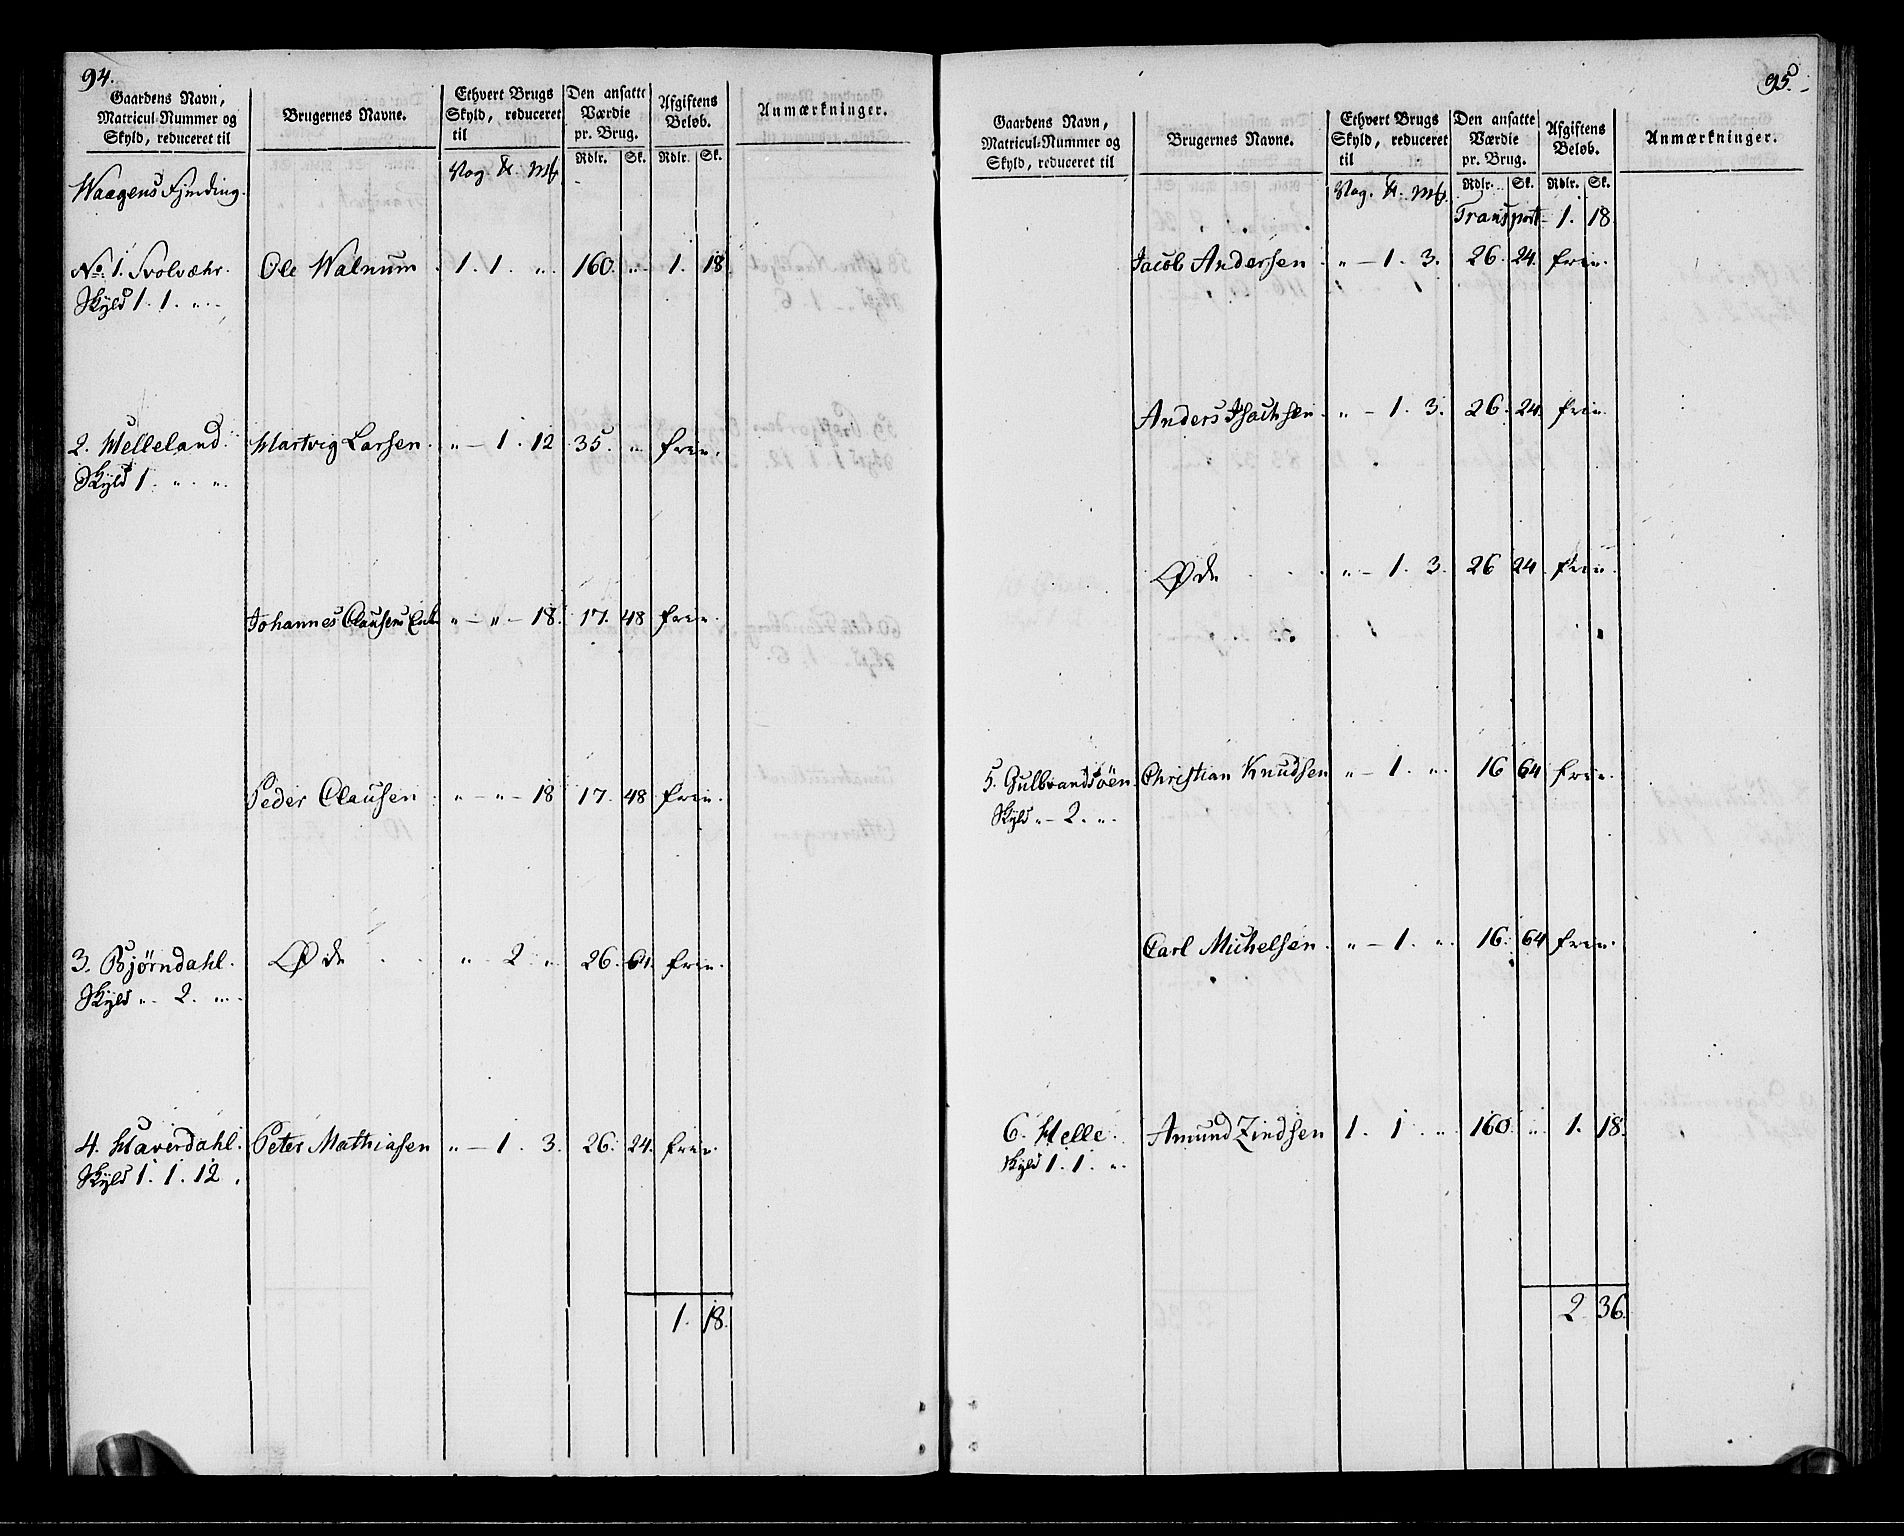 94.
Gaardens Navn, Matricul-Nummer og Skyld, reduceret til | Brugernes Navne. | Ethvert Brugs Skyld, reduceret til | Den ansatte Værdie pr. Brug. | Afgiftens Beløb. | Anmærkninger.
Vog. ℔. M℔. | Rdlr. | Sk. | Rdlr. | Sk.
Waagens Fjnding.
No 1. Svolvæhr. Ole Walnum . 1. 1. „ 160. „ 1. 18
Skyld 1. 1. „
2. Melleland. Hartvig Larsen. „ – 1. 12 35. „ frie.
Skyld 1. „ „
Johannes Clausens Enke „ – „ – 18. 17. 48 frie.
Peder Clausen. „ – „ – 18 17. 48 frie.
3. Bjørndahl. Øde „ 2 „ 26. 61. frie.
Skyld „ – 2. „
4. Haverdahl. Peter Mathiasen „ – 1. 3. 26. 24. frie.
Skyld 1. 1. 12
1. 18.
95.
Gaardens Navn, Matricul-Nummer og Skyld, reduceret til | Brugernes Navne. | Ethvert Brugs Skyld, reduceret til | Den ansatte Værdie pr. Brug. | Afgiftens Beløb. | Anmærkninger.
Vog. ℔. M℔. | Rdlr. | Sk. | Rdlr. | Sk.
Transport – 1. 18
Jacob Andersen . „ – 1. 3. 26. 24. frie.
Anders Isachsen. „ – 1. 3. 26. 24. frie.
Øde . . „ – 1. 3. 26 24 frie.
5. Gulbrandsøen. Christian Knudsen „ – 1. „ 16 64 frie.
Skyld „ – 2. „
Carl Michelsen. „ – 1. „ 16. 64 frie.
6. Helle. Amund Zindsen 1. 1 „ 160. „ 1. 18.
Skyld 1. 1. „
2 36.